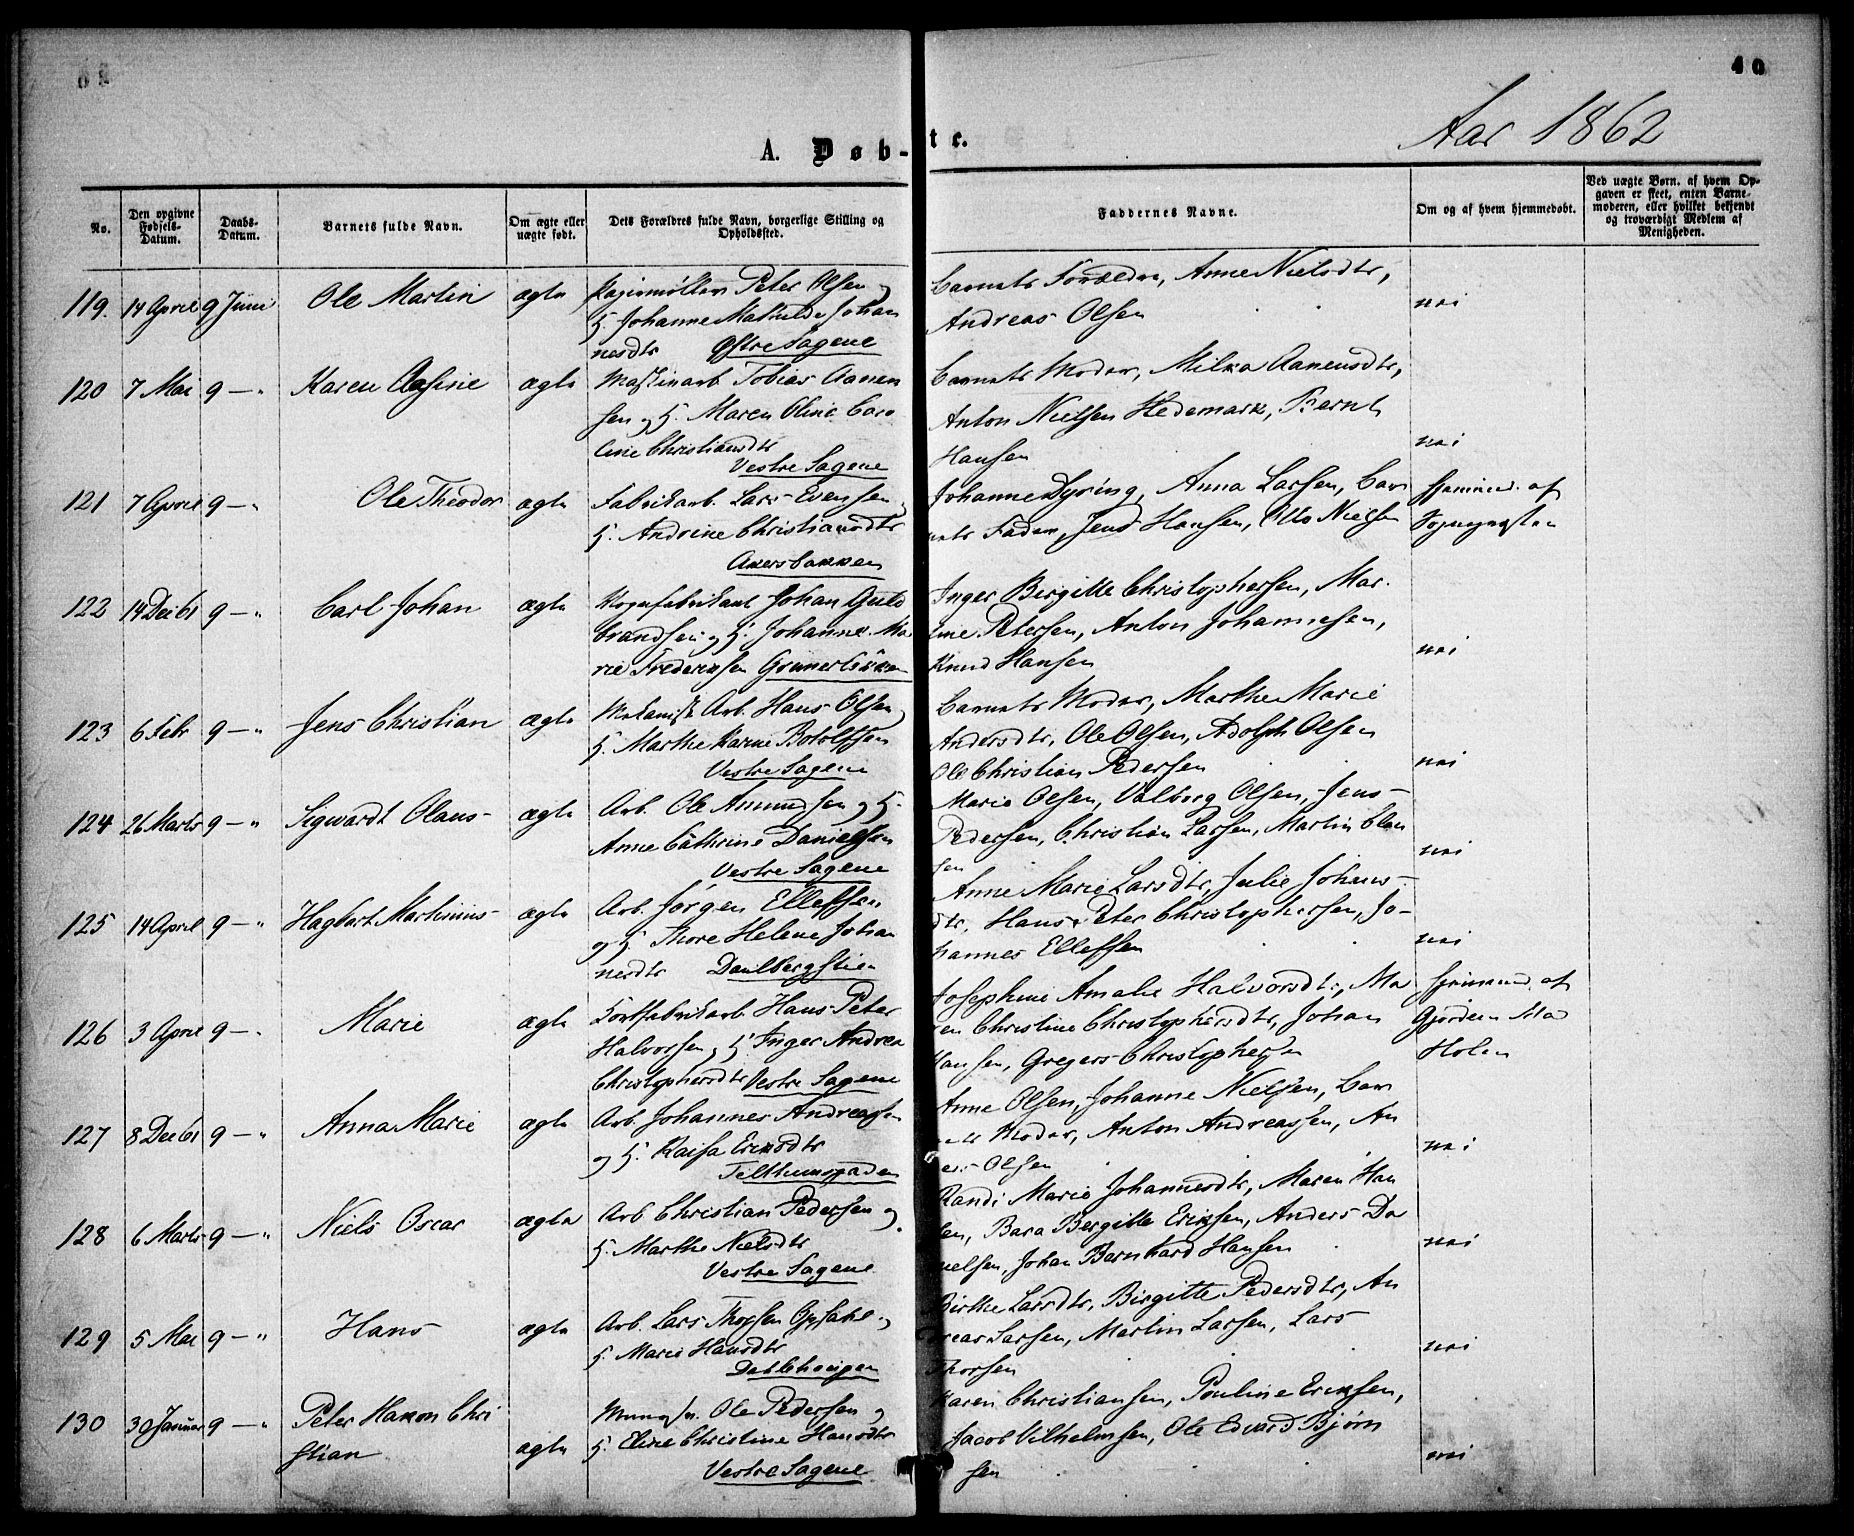 40
Aar 1862
A. Døb-te.
No.
Den opgivne Fødsels-Datum.
Daabs-Datum.
Barnets fulde Navn.
Om ægte eller uægte født.
Dets Forældres fulde Navn, borgerlige Stilling og Opholdssted.
Faddernes Navne.
Om og af hvem hjemmedøbt.
Ved uægte Børn, af hvem Opgaven er skeet, enten Barnemoderen, eller hvilket bekjendt og troværdigt Medlem af Menigheden.
119. 14 April 9 Juni Ole Martin ægte Papirmøller Peter Olsen og
H. Johanne Mathilde Johan
nesdtr Østre Sagene
Barnets Forældre, Anne Nielsdtr,
Andreas Olsen
nei
120 7 Mai 9 — " Karen Aasine ægte Maskinarb Tobias Aanen
sen og H. Maren Oline Caro
line Christiansdtr
Vestre Sagene
Barnets Moder, Milka Aanensdtr,
Anton Nielsen Hedemark, Bernt
Hansen
nei
121 7 April 9 — " Ole Theodor ægte Fabrikarb. Lars Evensen
H. Andrine Christiansdtr
Akersbakken
Johanne Dyring, Anna Larsen, Bar
nets Fader, Jens Hansen, Otto Nielsen
Hjemmed. af
Sognepresten
122 14 Dec 61 9 — " Carl Johan ægte Johan Guld
brandsen og H. Johanne Ma
rie Frederiksen Grünerløkken
Inger Birgitte Christophersen, Mar
ine Petersen, Anton Johannesen,
Knud Hansen
nei
123 6 Febr 9 — " Jens Christian ægte Mekanisk Arb. Hans Olsen
H. Marthe Karine Botolfsen
Vestre Sagene
Barnets Moder, Marthe Marie
Andersdtr, Ole Olsen, Adolph Olsen
Ole Christian Pedersen
nei
124 26 Marts 9 — " Sigwardt Olaus ægte Arb. Ole Amundsen og H.
Anne Cathrine Danielsen
Vestre Sagene
Marie Olsen, Valborg Olsen, Jens
Pedersen, Christian Larsen, Martin Clau
sen
nei
125 14 April 9 — " Hagbart Martinius ægte Arb. Jørgen Ellefsen
og H. Thore Helene Johan
nesdtr Dahlbergstien
Anne Marie Larsdtr, Julie Johans-
dtr, Hans Peter Christophersen, Jo-
hannes Ellefsen
nei
126 3 April 9 — " Marie ægte Hans Peter
Halvorsen, H. Inger Andrea
Christophersdtr Vestre Sagene
Josephine Amalie Halvorsdtr, Ma
ren Christine Christophersdtr, Johan
Hansen, Gregers Christophersen
Hjemmed. af
Holen
127 8 Dec 61 9 — " Anna Marie ægte Arb. Johannes Andreassen
og H. Kaisa Eriksdtr
Telthusgaden
Anne Olsen, Johanne Nielsen, Bar
nets Moder, Anton Andreassen, An
ders Olsen
nei
128 6 Marts 9 — " Niels Oscar ægte Arb Christian Pedersen og
H. Marthe Nielsdtr
Vestre Sagene
Randi Marie Johannesdtr, Maren Han
sen, Bara Bergitte Eriksen, Anders Da
nielsen, Johan Bernhard Hansen
nei
129 5 Mai 9 — " Hans ægte Arb. Lars Thorsen Opsahl og
H. Marie Hansdtr
Dælehaugen
Birthe Larsdtr, Birgitte Pedersdtr, An
dreas Larsen, Martin Larsen, Lars
Thorsen
nei
130 30 Januar 9 — " Peter Hakon Chri
stian
ægte
Ole Pedersen og
H. Eline Christine Hansdtr
Vestre Sagene
Karen Christiansen, Pouline Eriksen,
Jacob Vilhelmsen, Ole Edvard Bjørn
sen
nei